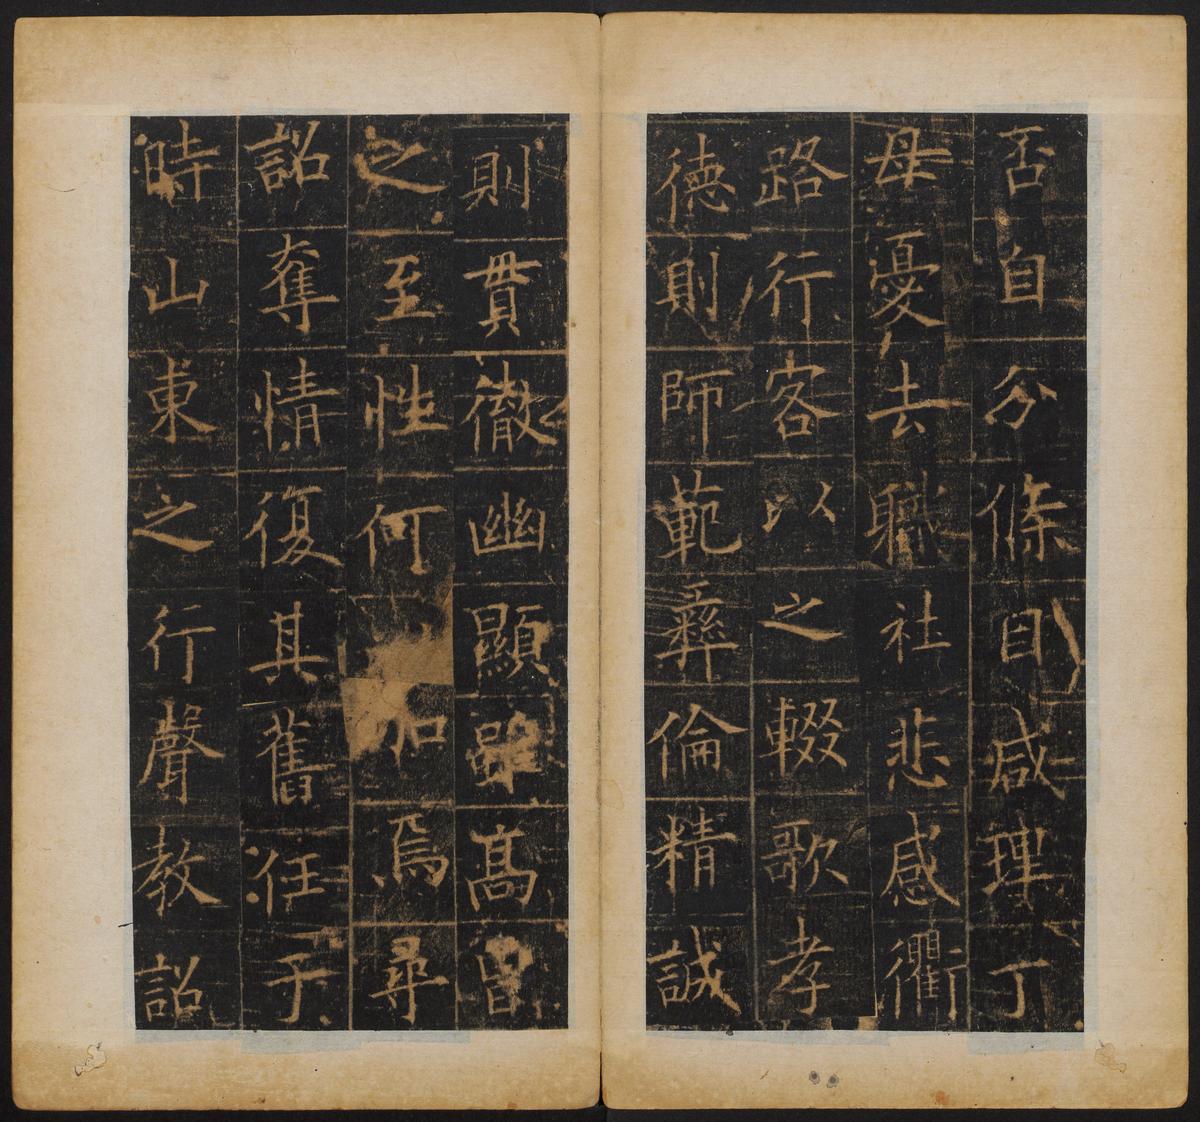 否自分條目咸理丁
母憂去職社悲感衢
路行客以之輟歌孝
德則師範彝倫精誠
則貫徹幽顯雖高曾
之至性何加焉尋
詔奪情復其舊任于
時山東之行聲教詔